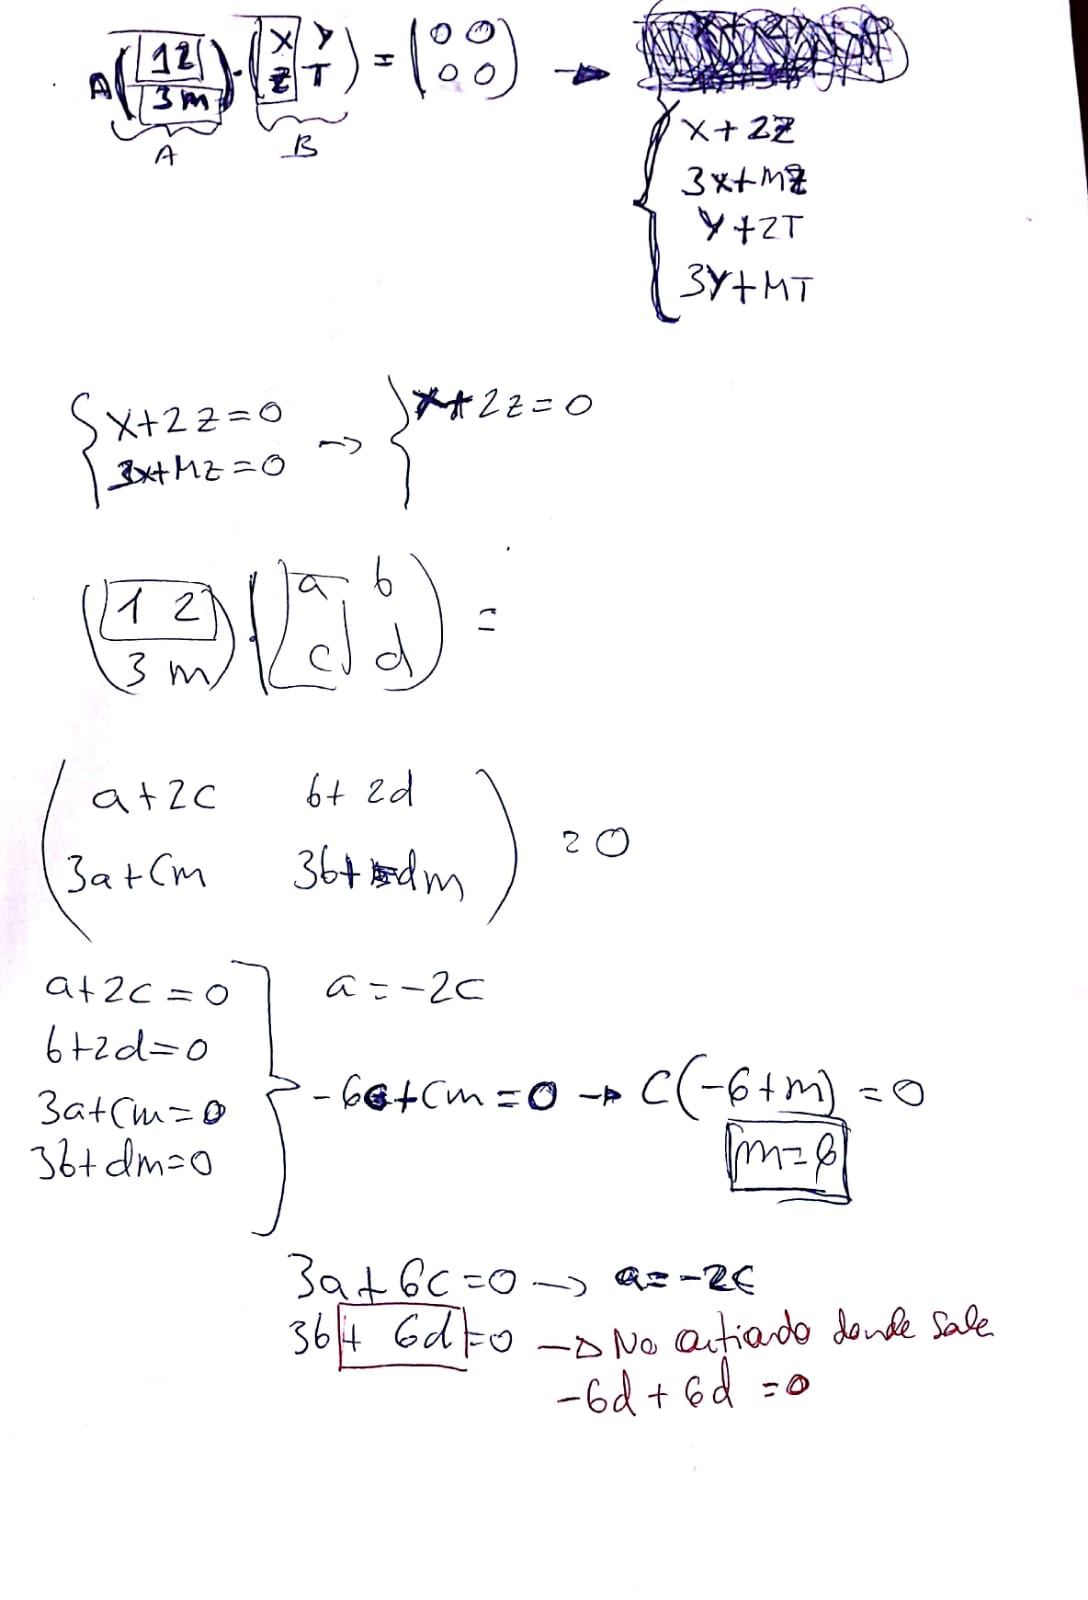 A ( 1 2 / 3 m ) · ( X Y / Z T ) = ( 0 0 / 0 0 ) →
A B
{ X + 2Z
3x + MZ
Y + 2T
3Y + MT
{ X + 2Z = 0 → { X + 2Z = 0
3x + MZ = 0
( 1 2 / 3 m ) · ( a b / c d ) =
( a + 2c b + 2d
3a + cm 3b + dm ) = 0
a + 2c = 0 } a = -2c
b + 2d = 0
3a + cm = 0 -6c + cm = 0 → C(-6 + m) = 0
3b + dm = 0 m = 6
3a + 6c = 0 → a = -2c
3b + 6d = 0 → No entiendo donde sale
-6d + 6d = 0